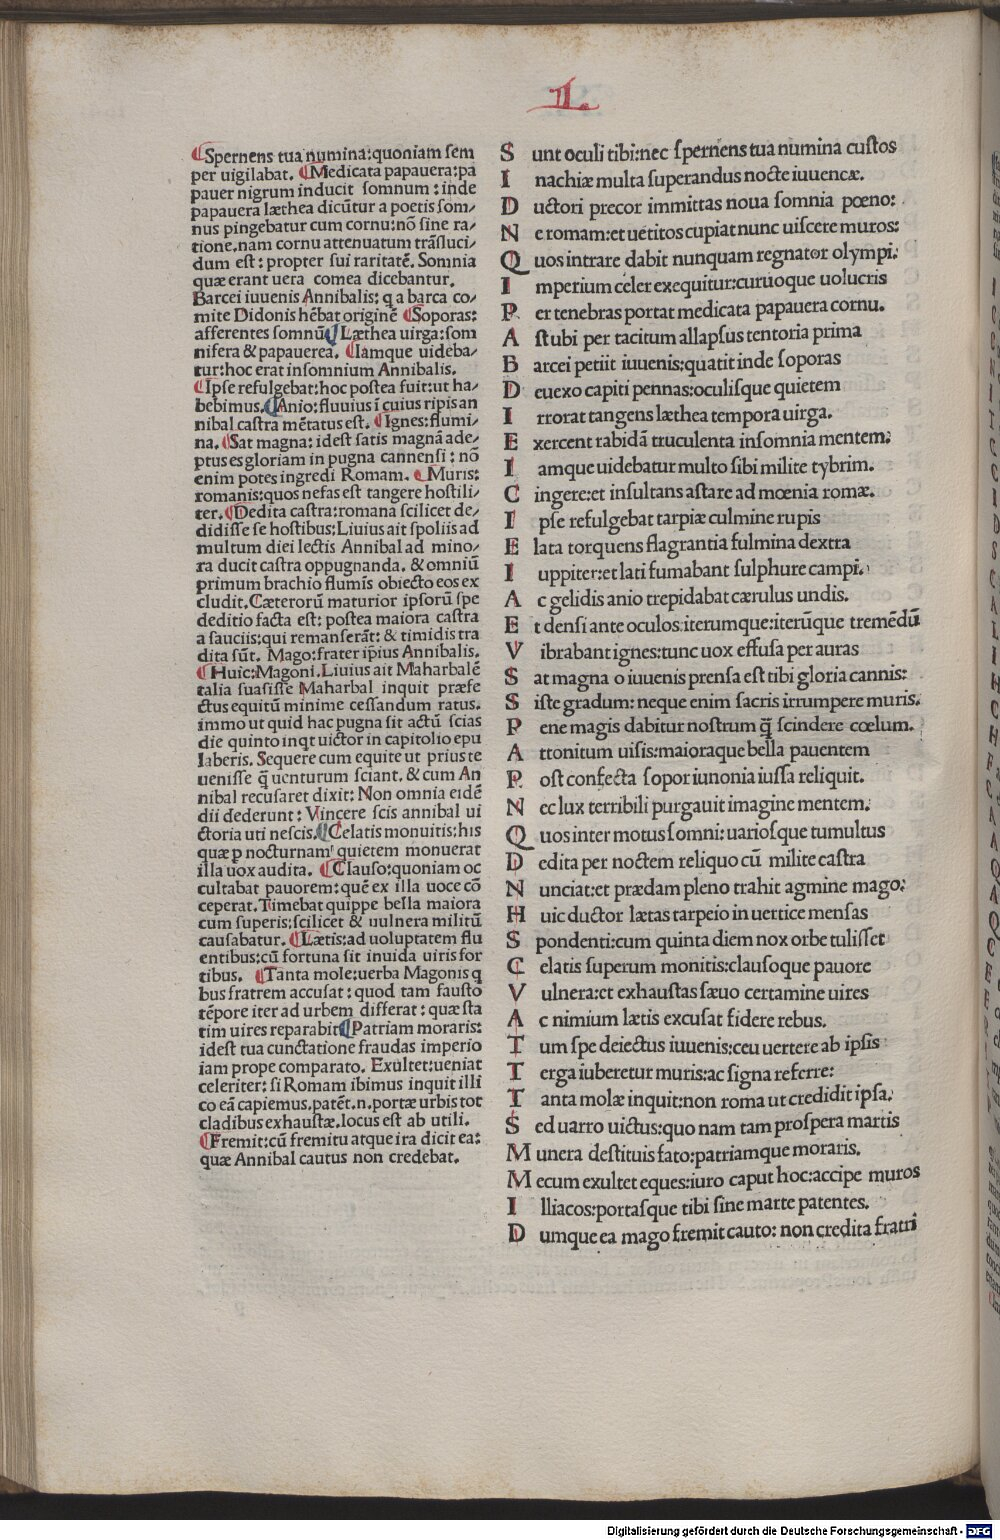 II.
¶Spernens tua numina:quoniam sem
per uigilabat. ¶Medicata papauera:pa
pauer nigrum inducit somnum : inde
papauera læthea dicũtur a poetis som/
nus pingebatur cum cornu:nõ sine ra/
tione.nam cornu attenuatum trãsluci/
dum est : propter sui raritatẽ. Somnia
quæ erant uera comea dicebantur.
Barcei iuuenis Annibalis: q a barca co/
mite Didonis hẽbat originẽ ¶Soporas:
afferentes somnũ¶Læthea uirga:som
nifera & papauerea. ¶Iamque uideba/
tur:hoc erat insomnium Annibalis.
¶Ipse refulgebat:hoc postea fuit:ut ha/
bebimus.¶Anio:fluuius ĩ cuius ripis an
nibal castra mẽtatus est. ¶Ignes:flumi/
na.¶Sat magna: idest satis magnã ade/
ptus es gloriam in pugna cannensi : nõ
enim potes ingredi Romam. ¶Muris:
romanis:quos nefas est tangere hostili/
ter.¶Dedita castra:romana scilicet de/
didisse se hostibus:Liuius ait spoliis ad
multum diei lectis Annibal ad mino/
ra ducit castra oppugnanda. & omniũ
primum brachio flumĩs obiecto eos ex
cludit.Cæterorũ maturior ipsorũ spe
deditio facta est: postea maiora castra
a sauciis:qui remanserãt: & timidis tra
dita sũt. Mago:frater ip̃ius Annibalis.
¶Huic:Magoni.Liuius ait Maharbalẽ
talia suasisse Maharbal inquit præfe
ctus equitũ minime cessandum ratus.
immo ut quid hac pugna sit actũ scias
die quinto inqt uictor in capitolio epu
laberis. Sequere cum equite ut prius te
uenisse q̃ uenturum sciant. & cum An
nibal recusaret dixit: Non omnia eidẽ
dii dederunt : Vincere scis annibal ui
ctoria uti nescis.¶Celatis monuitis:his
quæ p nocturnam quietem monuerat
illa uox audita. ¶Clauso:quoniam oc
cultabat pauorem:quẽ ex illa uoce cõ
ceperat.Timebat quippe bella maiora
cum superis:scilicet & uulnera militũ
causabatur. ¶Lætis:ad uoluptatem flu
entibus:cũ fortuna sit inuida uiris for
tibus. ¶Tanta mole:uerba Magonis q
bus fratrem accusat : quod tam fausto
tẽpore iter ad urbem differat : quæ sta
tim uires reparabit¶Patriam moraris:
idest tua cunctatione fraudas imperio
iam prope comparato. Exultet:ueniat
celeriter: si Romam ibimus inquit illi
co eã capiemus.patẽt.n.portæ urbis tot
cladibus exhaustæ.locus est ab utili.
¶Fremit:cũ fremitu atque ira dicit ea:
quæ Annibal cautus non credebat.
S unt oculi tibi:nec spernens tua numina custos
I nachiæ multa superandus nocte iuuencæ.
D uctori precor immittas noua somnia pœno:
N e romam:et uetitos cupiat nunc uiscere muros:
Q uos intrare dabit nunquam regnator olympi.
I mperium celer exequitur:curuoque uolucris
P er tenebras portat medicata papauera cornu.
A st ubi per tacitum allapsus tentoria prima
B arcei petiit iuuenis:quatit inde soporas
D euexo capiti pennas:oculisque quietem
I rrorat tangens læthea tempora uirga.
E xercent rabidã truculenta insomnia mentem:
I amque uidebatur multo sibi milite tybrim.
C ingere:et insultans astare ad mœnia romæ.
I pse refulgebat tarpiæ culmine rupis
E lata torquens flagrantia fulmina dextra
I uppiter:et lati fumabant sulphure campi.
A c gelidis anio trepidabat cærulus undis.
E t densi ante oculos:iterumque:iterũque tremẽdũ
V ibrabant ignes:tunc uox effusa per auras
S at magna o iuuenis prensa est tibi gloria cannis:
S iste gradum: neque enim sacris irrumpere muris.
P ene magis dabitur nostrum q̃ scindere cœlum.
A ttonitum uisis:maioraque bella pauentem
P ost confecta sopor iunonia iussa reliquit.
N ec lux terribili purgauit imagine mentem.
Q uos inter motus somni: uariosque tumultus
D edita per noctem reliquo cũ milite castra
N unciat:et prædam pleno trahit agmine mago:
H uic ductor lætas tarpeio in uertice mensas
S pondenti:cum quinta diem nox orbe tulisset
C elatis superum monitis:clausoque pauore
V ulnera:et exhaustas sæuo certamine uires
A c nimium lætis excusat fidere rebus.
T um spe deiectus iuuenis:ceu uertere ab ipsis
T erga iuberetur muris:ac signa referre:
T anta molæ inquit:non roma ut credidit ipsa.
S ed uarro uictus:quo nam tam prospera martis
M unera destituis fato:patriamque moraris.
M ecum exultet eques:iuro caput hoc:accipe muros
I lliacos:portasque tibi sine marte patentes.
D umque ea mago fremit cauto: non credita fratri
Digitalisierung gefördert durch die Deutsche Forschungsgemeinschaft - DFG